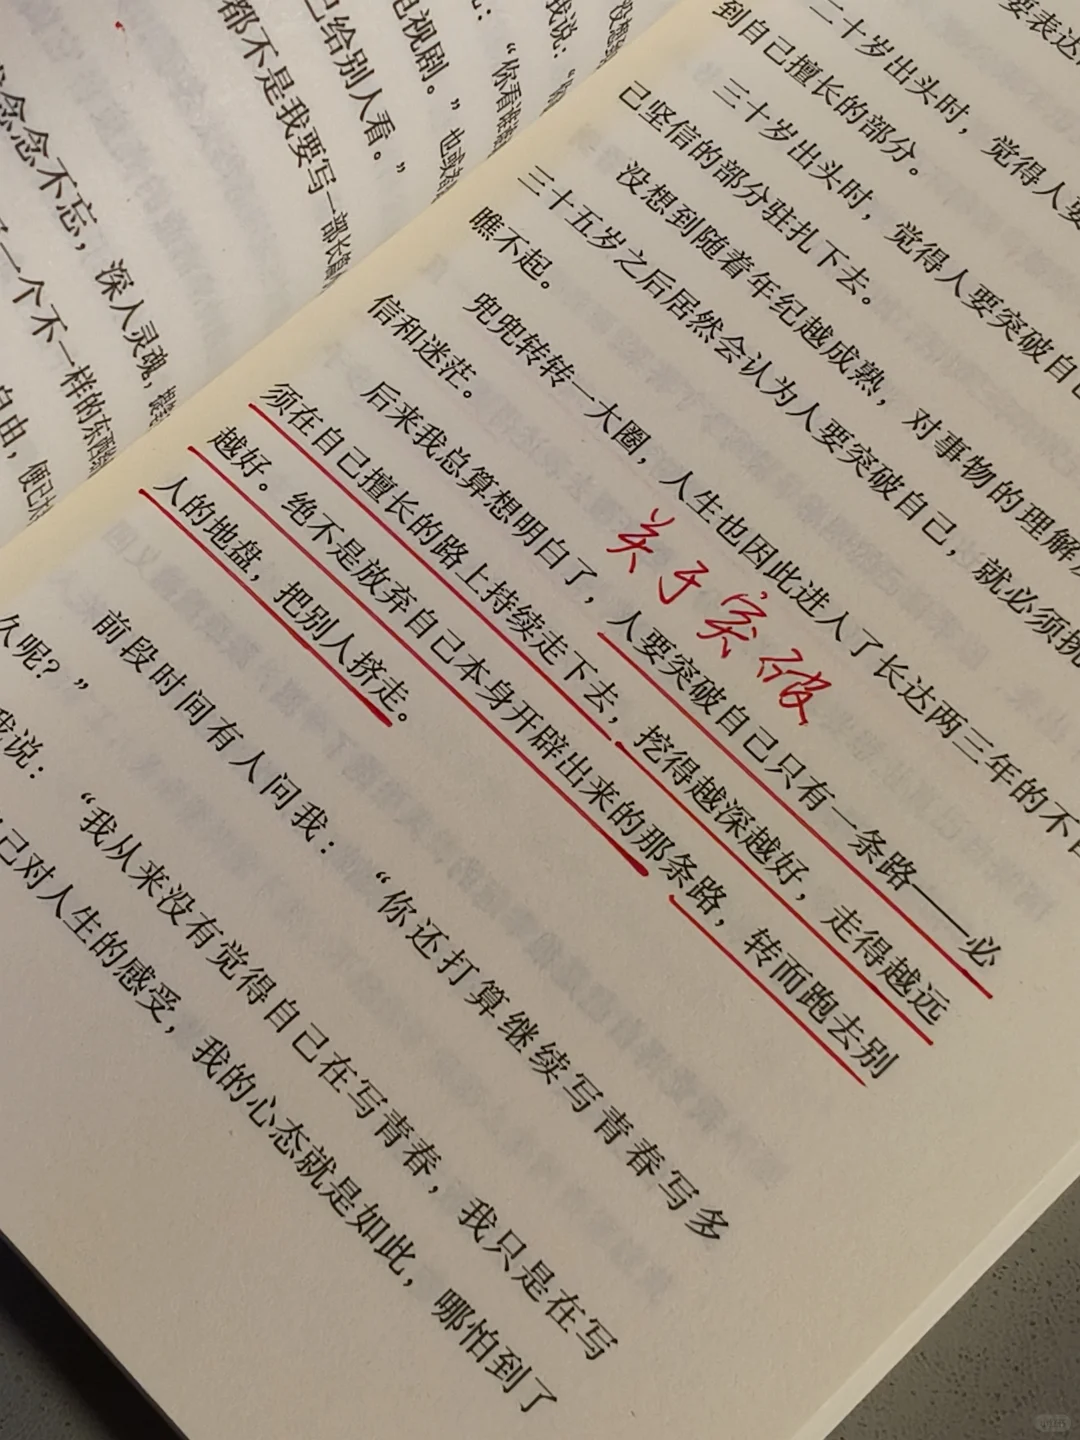 念念不忘，深入灵魂，
一个不一样的东西
自由，便已
电视剧。”也
己给别人看。”
都不是我要写一部长篇
我说：“
：“你看
要表达
二十岁出头时，觉得人要
到自己擅长的部分。
三十岁出头时，觉得人要突破自己
己坚信的部分驻扎下去。
没想到随着年纪越成熟，对事物的理解
三十五岁之后居然会认为人要突破自己，就必须挑
瞧不起。
兜兜转转一大圈，人生也因此进入了长达两三年的不自
信和迷茫。
关于突破
后来我总算想明白了，人要突破自己只有一条路——必
须在自己擅长的路上持续走下去，挖得越深越好，走得越远
越好。绝不是放弃自己本身开辟出来的那条路，转而跑去别
人的地盘，把别人挤走。
前段时间有人问我：“你还打算继续写青春写多
久呢？”
我说：“我从来没有觉得自己在写青春，我只是在写
己对人生的感受，我的心态就是如此，哪怕到了